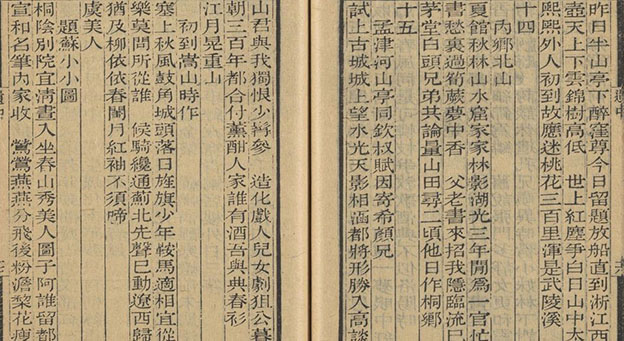 昨日半山亭下醉窪尊今日留題放船直到淅江西
壺天上下雲錦樹高低　世上紅塵爭白日山中太
熙熙外人初到故應迷桃花三百里渾是武陵溪
十四
內鄉北山
夏館秋林山水窟家家林影湖光三年閒爲一官忙
書愁裏過筍蕨夢中香　父老書來招我隱臨流已
茅堂白頭兄弟共論量山田尋二頃他日作桐鄉
十五
孟津河山亭同欽叔賦因寄希顏兄
試上古城城上望水光天影相涵都將形勝入高談
山君與我獨恨少髯參　造化戲人兒女劇狙公暮
朝三百年都合付薰酣人家誰有酒吾與典春衫
江月晃重山
初到嵩山時作
塞上秋風鼓角城頭落日旌旗少年鞍馬適相宜從
樂莫問所從誰　候騎纔通薊北先聲已動遼西歸
猶及柳依依春閨月紅袖不須啼
虞美人
題蘇小小圖
桐陰別院宜清晝入坐春山秀美人圖子阿誰留都
宣和名筆內家收　鶯鶯燕燕分飛後粉澹梨花瘦